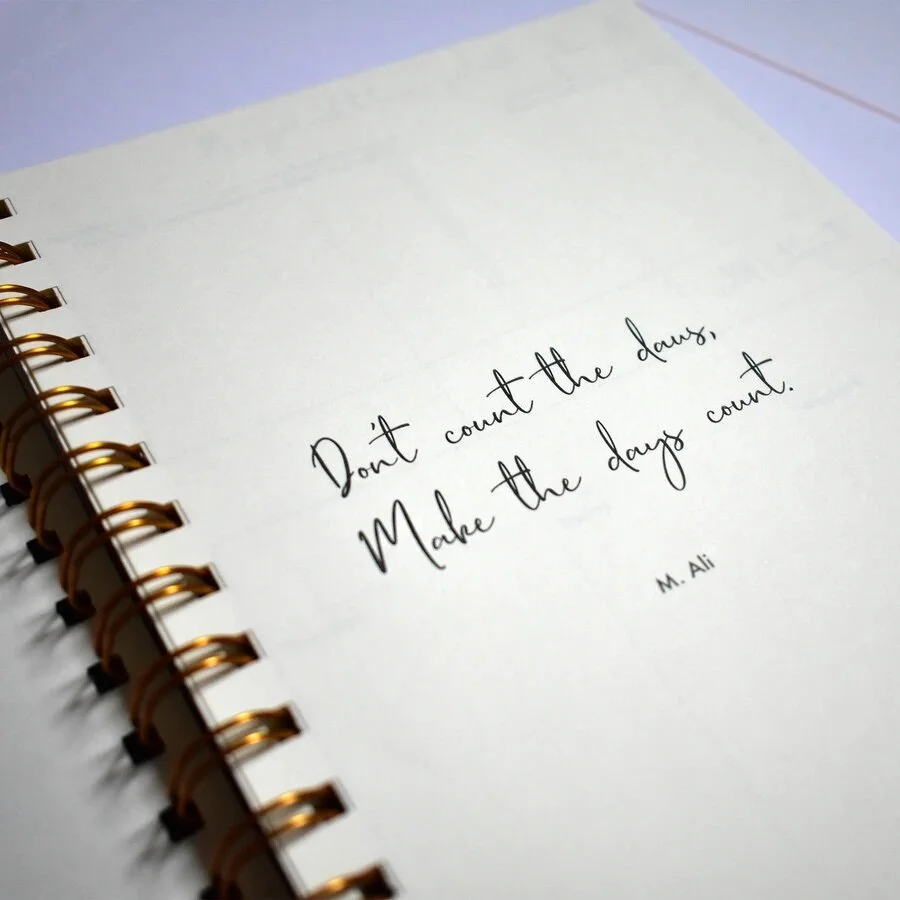 Don't count the days,
Make the days count.
M. Ali